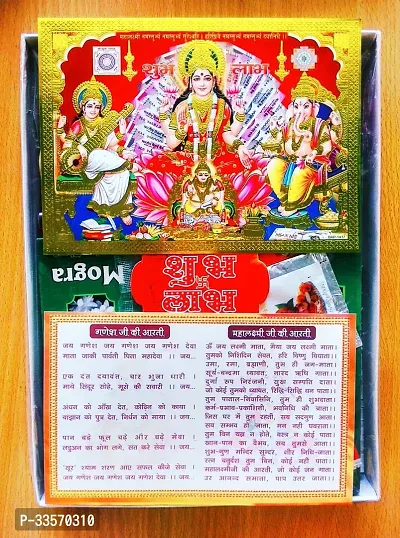 शुभ लाभ
Mogra
शुभ
लाभ
गणेश जी की आरती
जय गणेश जय गणेश जय गणेश देवा
माता जाकी पार्वती पिता महादेवा ।। जय...
एक दंत दयावंत, चार भुजा धारी ।
माथे सिंदूर सोहे, मूसे की सवारी ।। जय...
अंधन को आँख देत, कोढ़िन को काया ।
बांझन को पुत्र देत, निर्धन को माया ।। जय...
पान चढ़े फूल चढ़े और चढ़े मेवा ।
लडुअन का भोग लगे, संत करे सेवा ।। जय...
'सूर' श्याम शरण आए सफल कीजे सेवा ।
जय गणेश जय गणेश जय गणेश देवा ।। जय...
महालक्ष्मी जी की आरती
ॐ जय लक्ष्मी माता, मैया जय लक्ष्मी माता।
तुमको निशिदिन सेवत, हरि विष्णु विधाता।।
उमा, रमा, ब्रह्माणी, तुम ही जग-माता।
सूर्य-चन्द्रमा ध्यावत, नारद ऋषि गाता।।
दुर्गा रूप निरंजनी, सुख सम्पति दाता।
जो कोई तुमको ध्यावत, रिद्धि-सिद्धि धन पाता।।
तुम पाताल-निवासिनि, तुम ही शुभदाता।
कर्म-प्रभाव-प्रकाशिनी, भवनिधि की त्राता।।
जिस घर में तुम रहती, सब सद्गुण आता।
सब सम्भव हो जाता, मन नहीं घबराता।।
तुम बिन यज्ञ न होते, वस्त्र न कोई पाता।
खान-पान का वैभव, सब तुमसे आता।।
शुभ-गुण मन्दिर सुन्दर, क्षीर निधि-जाता।
रत्न चतुर्दश तुम बिन, कोई नहीं पाता।।
महालक्ष्मीजी की आरती, जो कोई जन गाता।
उर आनन्द समाता, पाप उतर जाता।।
P-33570310